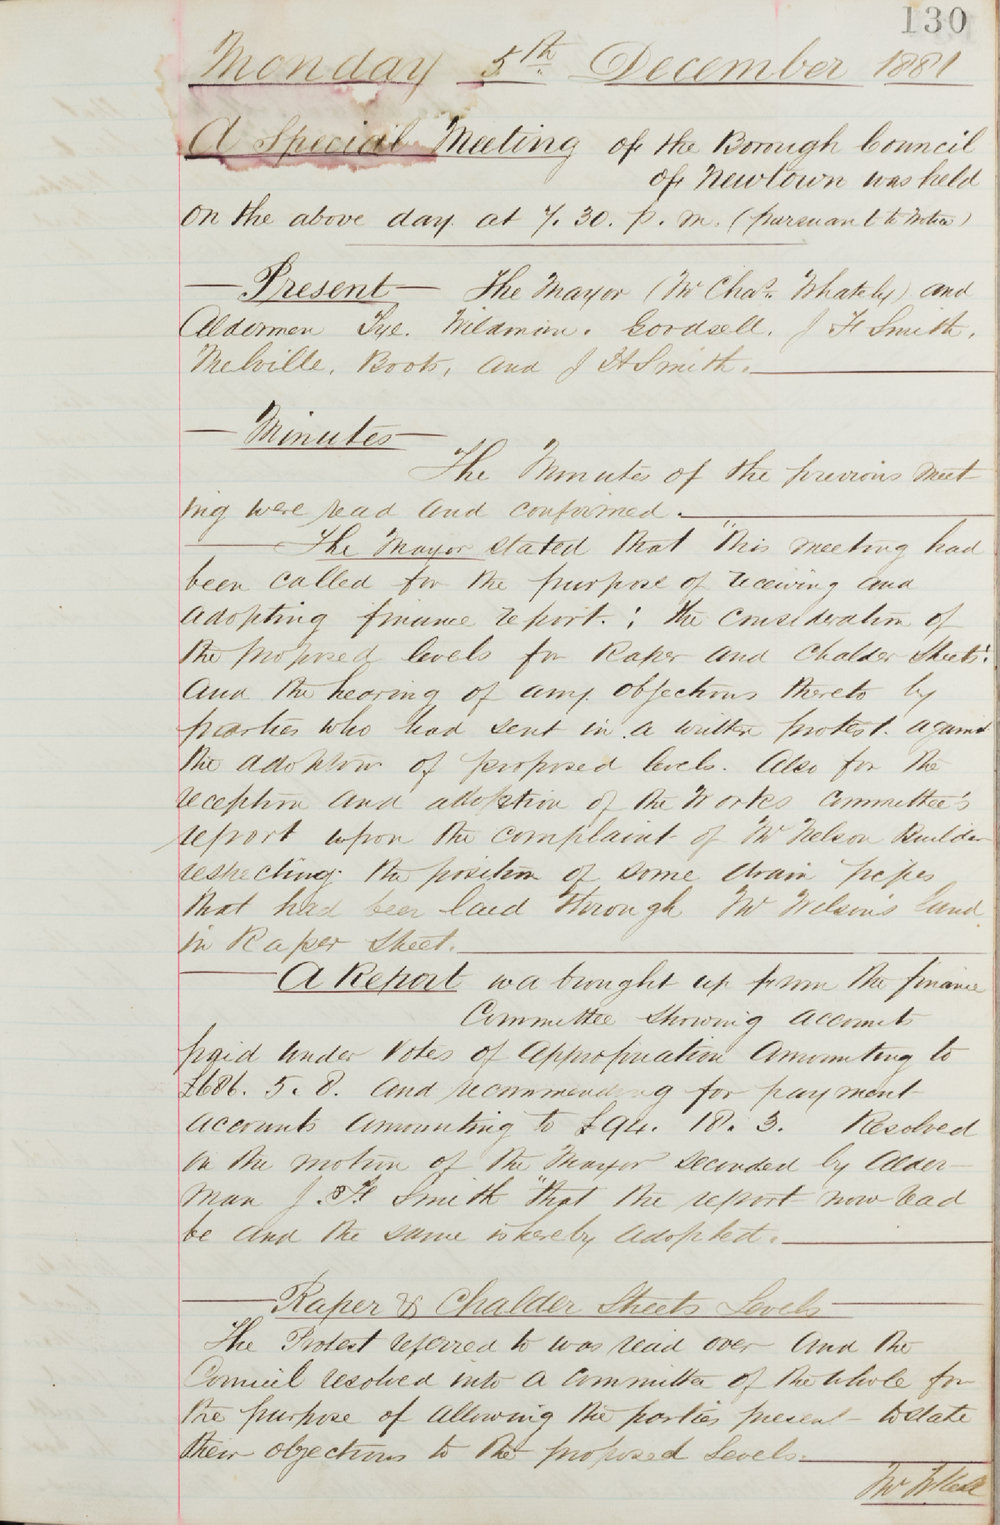 130
Monday 5th December 1881
A Special Meeting of the Borough Council
of Newtown was held
on the above day at 7.30. p.m. (pursuant to Notice)
— Present — The Mayor (Mr Chas. Whately) and
Aldermen Tye. Wildman. Goodsell. J F Smith,
Melville, Boots, and J H Smith.
— Minutes —
The Minutes of the previous meet
ing were read and confirmed.
The Mayor stated that "this meeting had
been called for the purpose of receiving and
adopting finance report. ; the consideration of
the proposed levels for Raper and Chalder Streets".
and the hearing of any objections thereto by
parties who had sent in a written protest against
the adoption of proposed levels. Also for the
reception and adoption of the Works Committee's
report upon the complaint of Mr Nelson Builder
respecting the position of some drain pipes
that had been laid through Mr land
in Raper Street.
A Report wa brought up from the finance
Committee showing accounts
paid under Votes of Appropriation amounting to
£686. 5. 8. and recommending for payment
accounts amounting to £94. 18. 3. Resolved
on the motion of the Mayor seconded by Alder-
man J. F. Smith "that the report now read
be and the same is hereby adopted.
Raper & Chalder Streets Levels
The Protest referred to was read over and the
Council resolved into a Committee of the whole for
the purpose of allowing the parties present - to state
their objections to the proposed Levels.
Mr